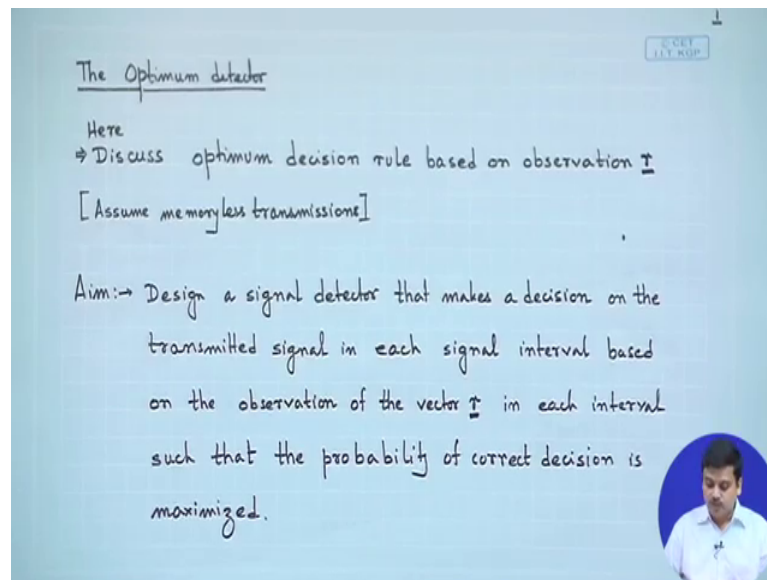 1
© CET
I.I.T. KGP
The Optimum detector
Here
⇒ Discuss optimum decision rule based on observation r
[Assume memoryless transmissions]
Aim:→ Design a signal detector that makes a decision on the
transmitted signal in each signal interval based
on the observation of the vector r in each interval
such that the probability of correct decision is
maximized.